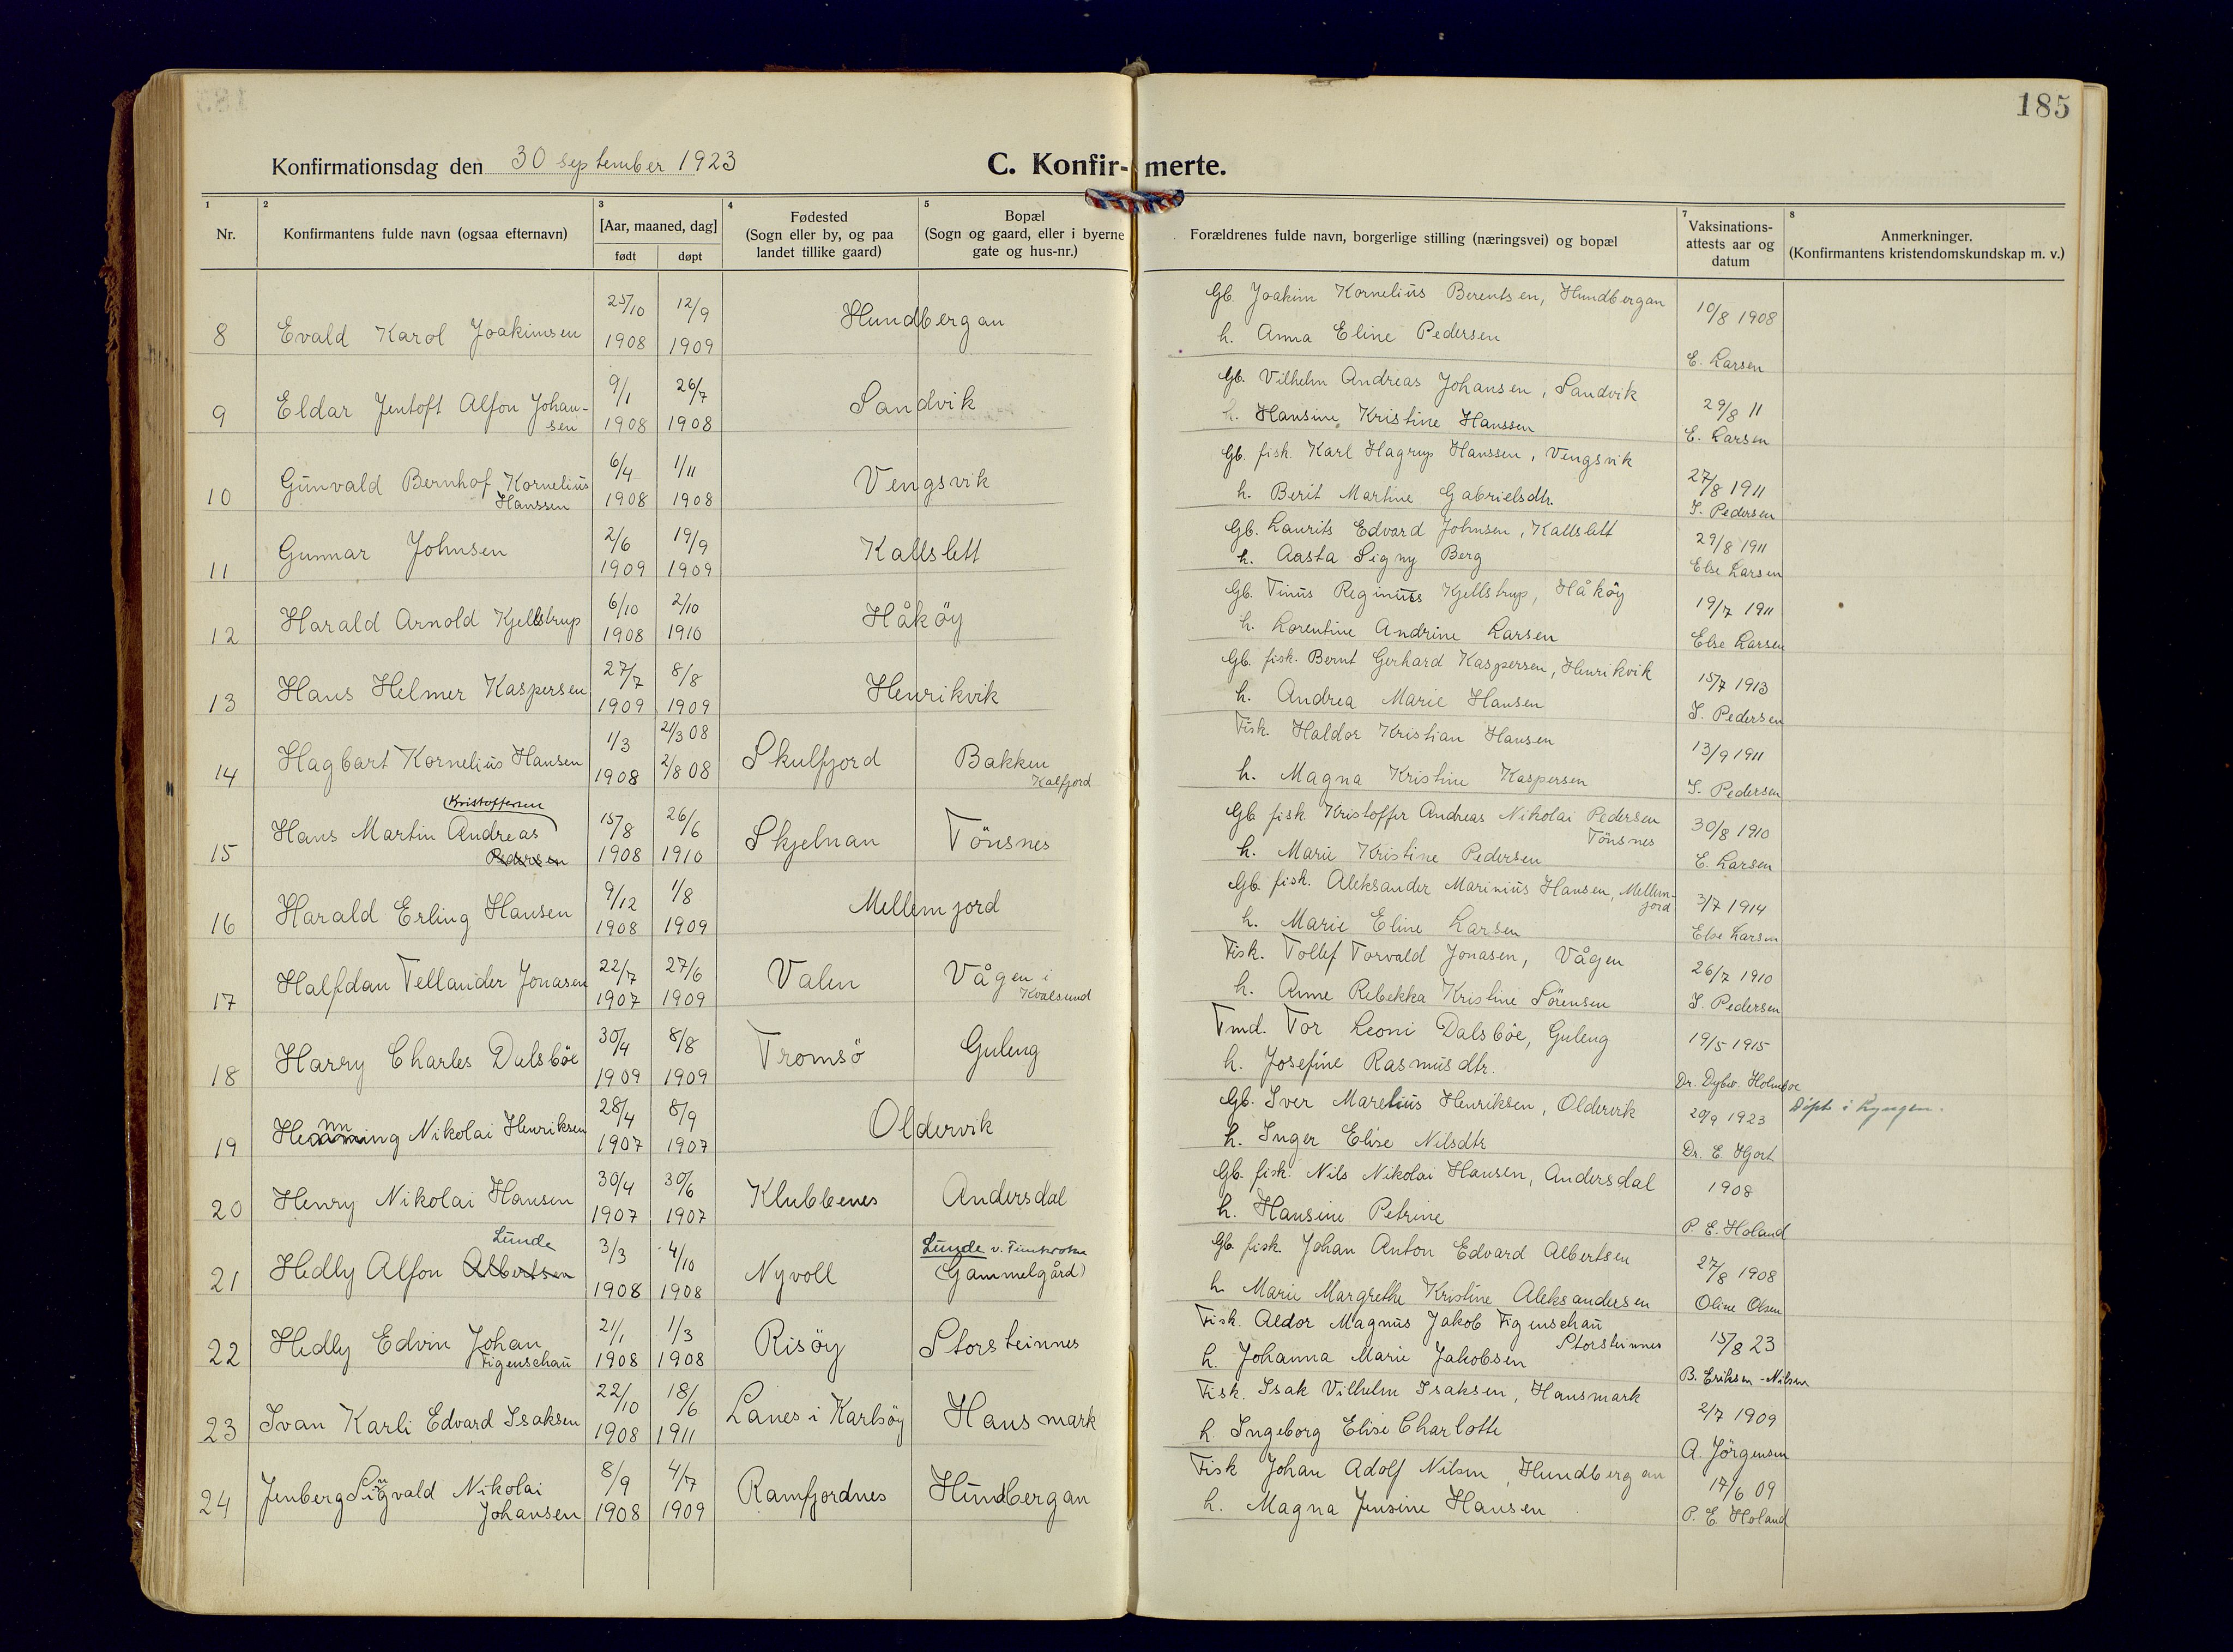 185
Konfirmationsdag den 30 september 1923
C. Konfir- merte.
1 2 3 4 5 7 8
Nr.
Konfirmantens fulde navn (ogsaa efternavn)
[Aar, maaned, dag]
født døpt
Fødested
(Sogn eller by, og paa
landet tillike gaard)
Bopæl
(Sogn og gaard, eller i byerne
gate og hus-nr.)
Forældrenes fulde navn, borgerlige stilling (næringsvei) og bopæl
Vaksinations-
attests aar og
datum
Anmerkninger.
(Konfirmantens kristendomskundskap m. v.)
25/10 12/9 Hundbergan Gb. Joakim Kornelius Berentsen, Hundbergan 10/8 1908
8 Evald Karol Joakimsen 1908 1909 h. Anna Eline Pedersen E. Larsen
9/1 26/7 Gb. Vilhelm Andreas Johansen, Sandvik 29/8 11
9 Eldar Jentoft Alfon Johan- Sandvik
sen 1908 1908 h. Hansine Kristine Hanssen E. Larsen
6/4 1/11 Gb. fisk. Karl Hagrup Hanssen, Vengsvik 27/8 1911
10 Gunvald Bernhof Kornelius Vengsvik
Hanssen 1908 1908 h. Berit Martine Gabrielsdtr. I. Pedersen
2/6 19/9 Gb. Laurits Edvard Johnsen, Kallslett 29/8 1911
11 Gunnar Johnsen 1909 1909 Kallslett h. Aasta Signy Berg Else Larsen
6/10 2/10 Gb. Tinus Reginus Kjellstrup, Håköy 19/7 1911
12 Harald Arnold Kjellstrup 1908 1910 Håköy h. Lorentine Andrine Larsen Else Larsen
27/7 8/8 Gb. fisk. Bernt Gerhard Kaspersen, Henrikvik 15/7 1913
13 Hans Helmer Kaspersen 1909 1909 Henrikvik h. Andrea Marie Hansen I. Pedersen
1/3 21/3 08 Fisk. Haldor Kristian Hansen 13/9 1911
14 Hagbart Kornelius Hansen 1908 2/8 08 Skulfjord Bakken
Kalfjord h. Magna Kristine Kaspersen I. Pedersen
Kristoffersen
15/8 26/6 Gb fisk Kristoffer Andreas Nikolai Pedersen 30/8 1910
15 Hans Martin Andreas Skjelnan Tönsnes Tönsnes
Pedersen 1908 1910 h. Marie Kristine Pedersen E. Larsen
9/12 1/8 Gb. fisk. Aleksander Marinius Hansen, Mellem-
jord 3/7 1914
16 Harald Erling Hansen 1908 1909 Mellemjord h. Marie Eline Larsen Else Larsen
22/7 27/6 Fisk. Tollef Torvald Jonasen, Vågen 26/7 1910
17 Halfdan Tellander Jonasen 1907 1909 Valen Vågen i
Kvalsund h. Anne Rebekka Kristine Sörensen I. Pedersen
30/4 8/8 Tmd. Tor Leoni Dalsböe, Guleng 19/5 1915
18 Harry Charles Dalsböe 1909 1909 Tromsö Guleng h. Josefine Rasmusdtr. Dr. Dybw. Holmboe
28/4 8/9 Gb. Iver Marelius Henriksen, Oldervik 20/9 1923 Döpt i Lyngen.
19 Henning Nikolai Henriksen 1907 1907 Oldervik h. Inger Elise Nilsdtr Dr. E. Hjort
30/4 30/6 Gb. fisk. Nils Nikolai Hansen, Andersdal 1908
20 Henry Nikolai Hansen 1907 1907 Klubbenes Andersdal h. Hansine Petrine P. E. Holand
Lunde
3/3 4/10 Lunde v. Gb. fisk. Johan Anton Edvard Albertsen 27/8 1908
21 Hedly Alfon Albertsen 1908 1908 Nyvoll (Gammelgård) h. Marie Margrethe Kristine Aleksandersen Oline Olsen
21/1 1/3 Fisk. Aldor Magnus Jakob Figenschau 15/8 23
22 Hedly Edvin Johan Risöy Storsteinnes Storsteinnes
Figenschau 1908 1908 h. Johanna Marie Jakobsen B. Eriksen-Nilsen
22/10 18/6 Fisk. Isak Vilhelm Isaksen, Hansmark 2/7 1909
23 Ivan Karli Edvard Isaksen 1908 1911 Lanes i Karlsöy Hansmark h. Ingeborg Elise Charlotte A. Jörgensen
8/9 4/7 Fisk Johan Adolf Nilsen, Hundbergan 17/6 09
24 Jenberg Sigvald Nikolai Ramfjordnes Hundbergan
Johansen 1908 1909 h. Magna Jensine Hansen P. E. Holand